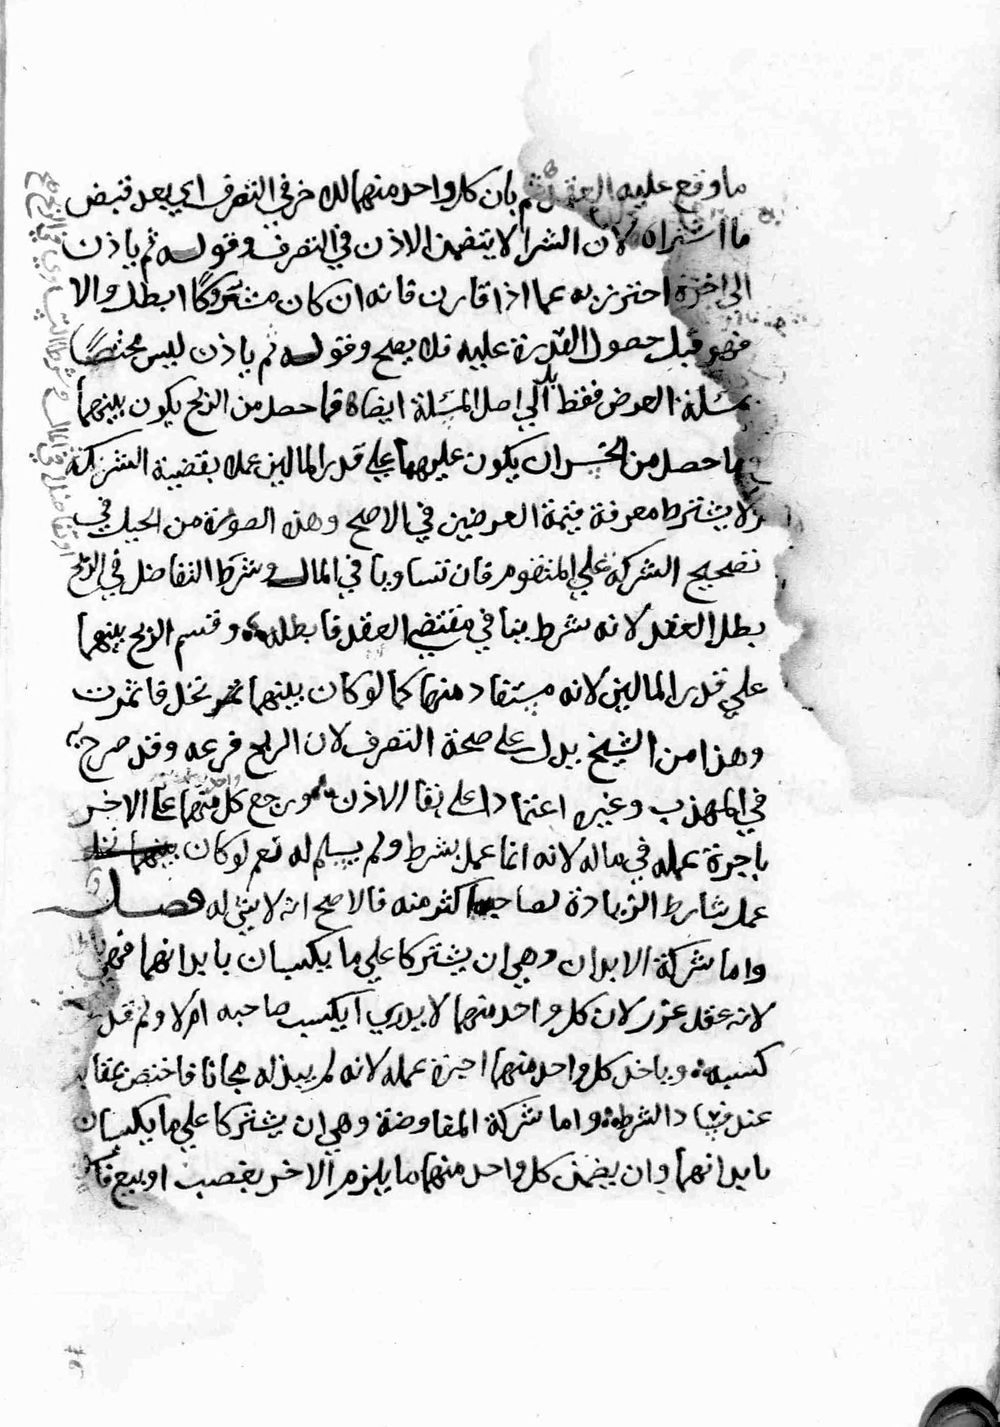 ما وقع عليه العقد ثم بان كل واحد منهما للاخر في التصرف اي بعد قبض
ما اشتراه لان الشرا لا يتضمن الاذن في التصرف وقوله ثم ياذن
الى اخره احترز به عما اذا قارن فانه ان كان مشروطا ابطل والا
فهو قبل حصول القدرة عليه فلا يصح وقوله ثم ياذن ليس مختصا
بمسئلة العرض فقط بل الي اصل المسئلة ايضا فما حصل من الربح يكون بينهما
وما حصل من الخسران يكون عليهما علي قدر المالين عملا بقضية الشركة
ولا يشترط معرفة قيمة العرضين في الاصح وهذه الصورة من الحيل في
تصحيح الشركة علي المتقوم فان تساويا في المال وشرط التفاضل في الربح
بطل العقد لانه شرط ينافي مقتضي العقد فابطله وقسم الربح بينهما
علي قدر المالين لانه مستفاد منهما كما لو كان بينهما نخل فاثمرت
وهذا من الشيخ يدل على صحة التصرف لان الربح فرعه وقد صرح به
في المهذب وغيره اعتمادا على بقا الاذن ورجع كل واحد منهما على الاخر
باجرة عمله في ماله لانه انما عمل بشرط ولم يسلم له نعم لو كان
عمل شارط الزيادة لصاحبه اكثر منه فالاصح انه لا شي له فصل
واما شركة الابدان وهي ان يشتركا علي ما يكسبان بابدانهما فهي
لانه عقد غرر لان كل واحد منهما لا يدري ايكسب صاحبه ام لا ولم قدر
كسبه وياخذ كل واحد منهما اجرة عمله لانه لم يبذله مجانا فاختص
عند فساد الشرط واما شركة المفاوضة وهي ان يشتركا علي ما يكسبان
بابدانهما وان يضمن كل واحد منهما ما يلزم الاخر بغصب او بيع